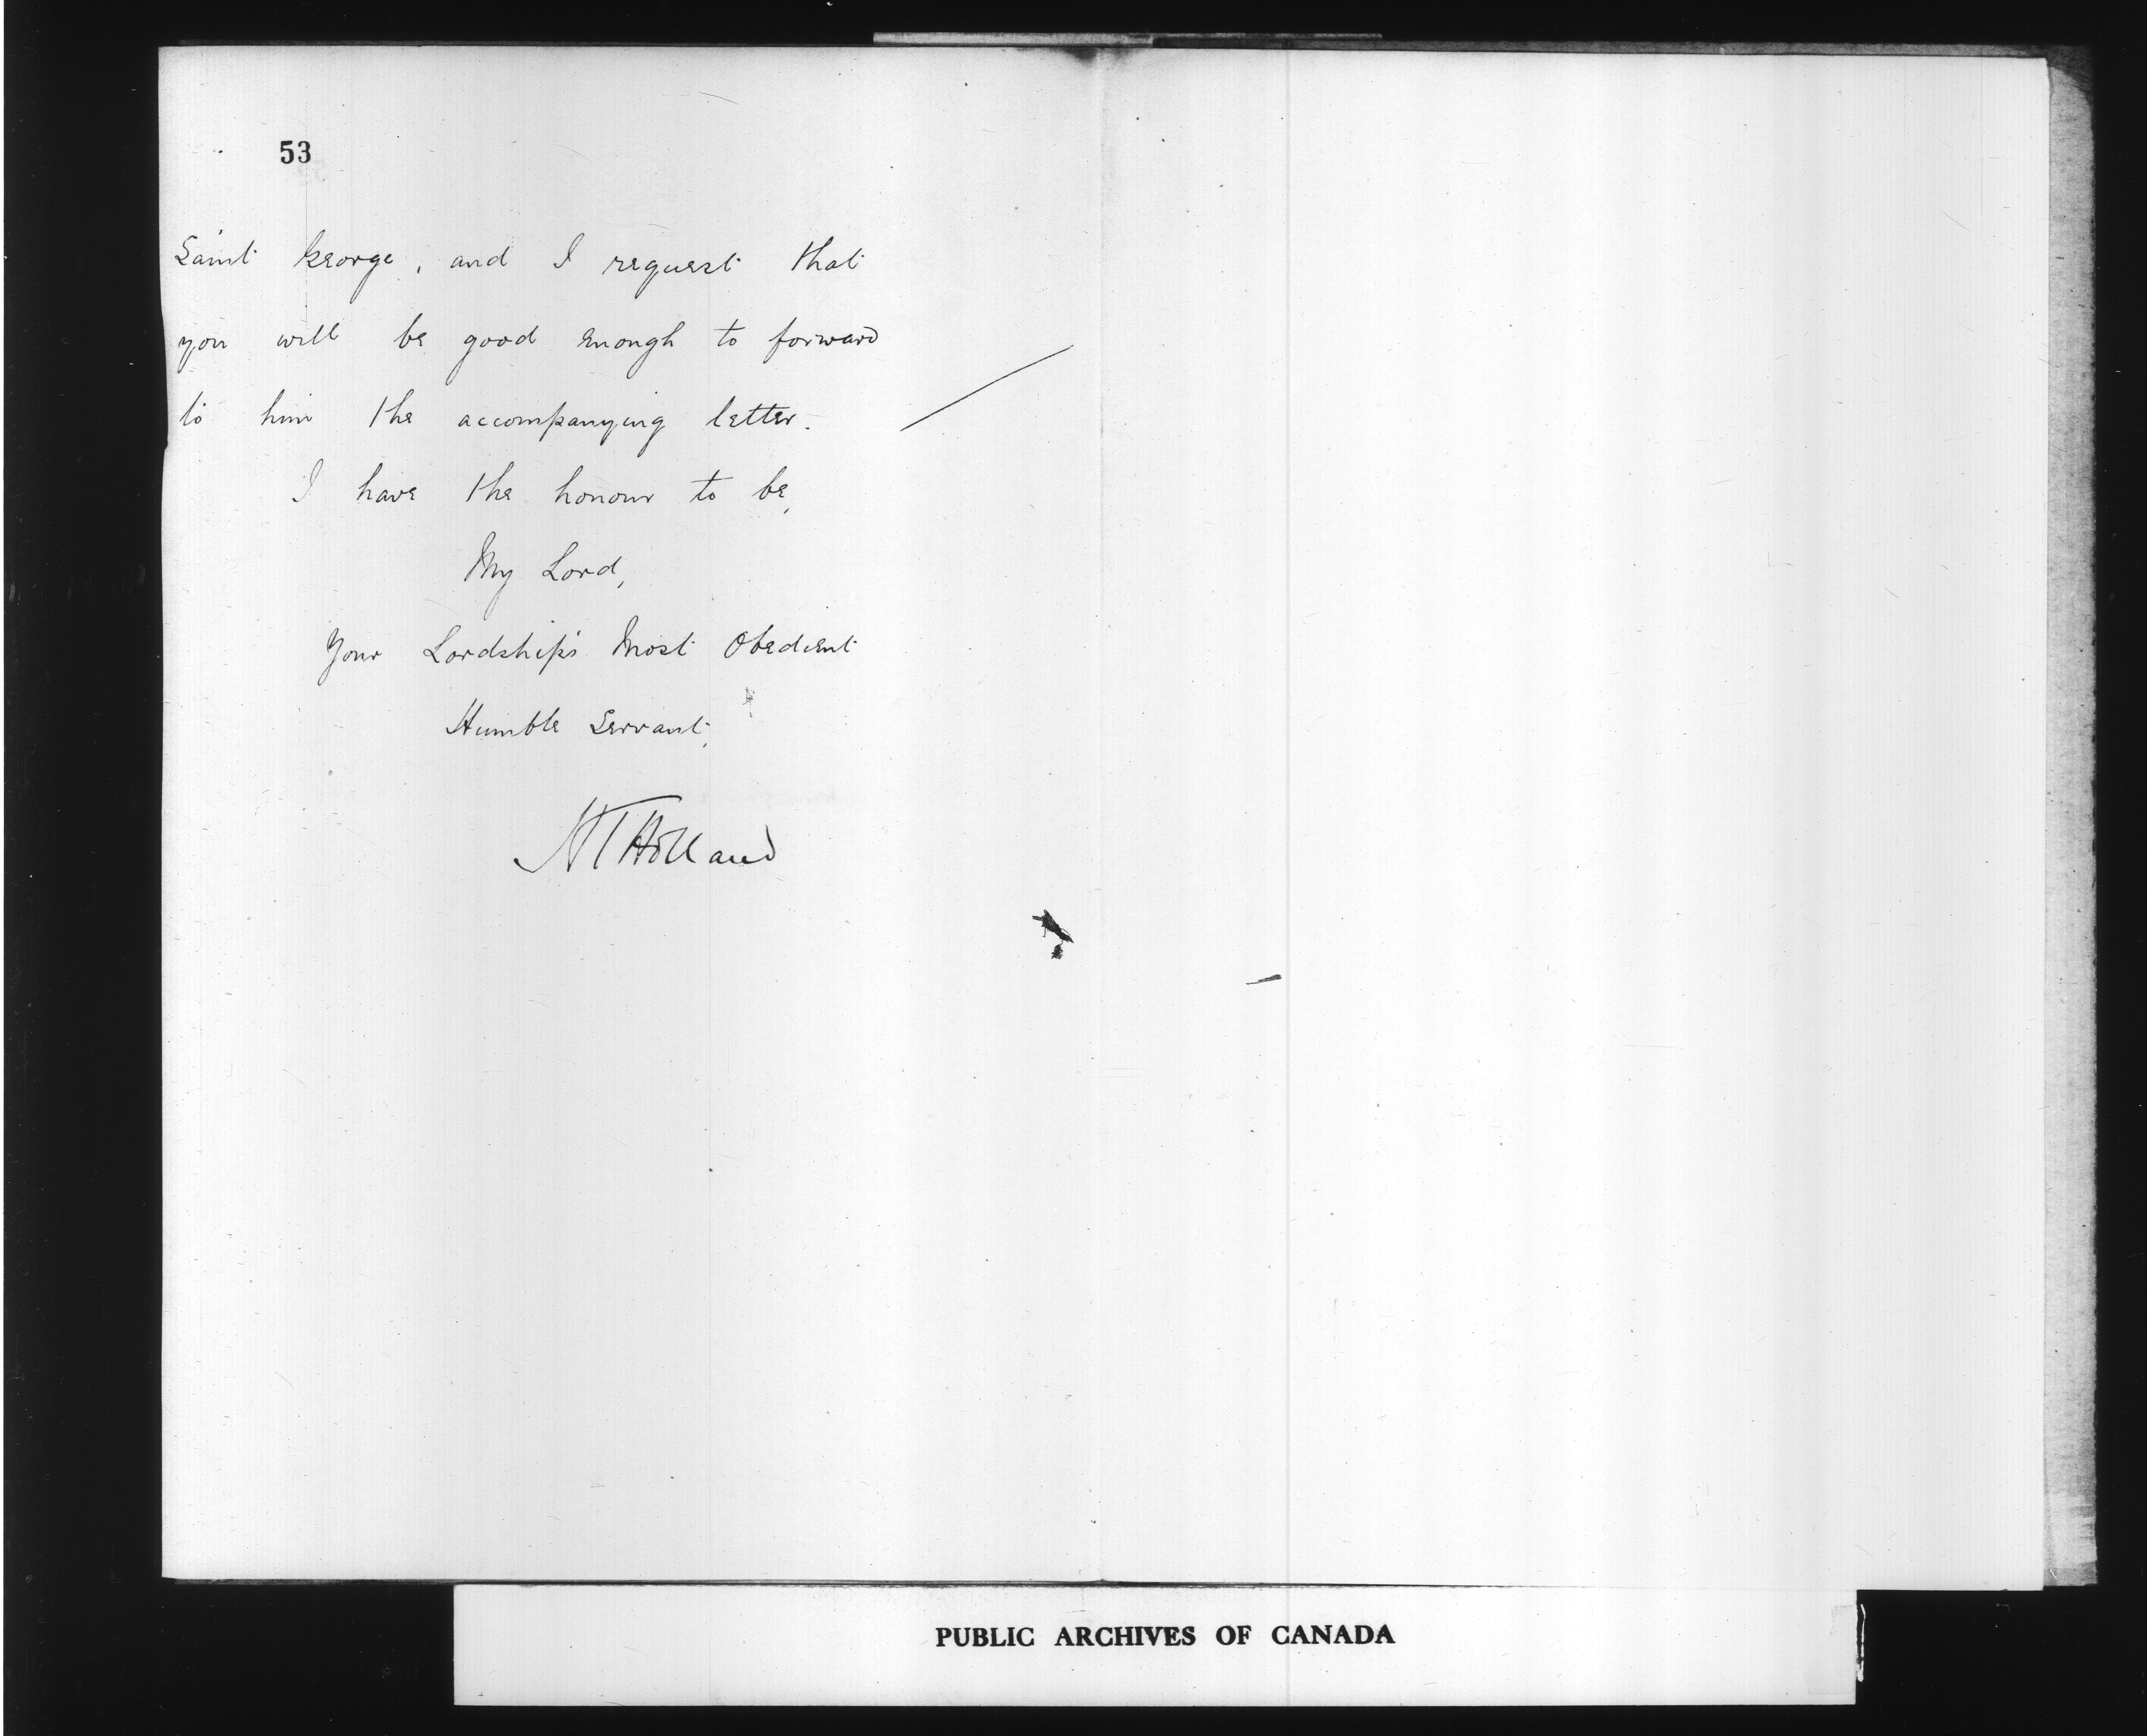 53
Saint George, and I request that
you will be good enough to forward
to him the accompanying letter.
I have the honour to be,
My Lord,
Your Lordship's Most Obedient
Humble Servant,
H T Holland
PUBLIC ARCHIVES OF CANADA